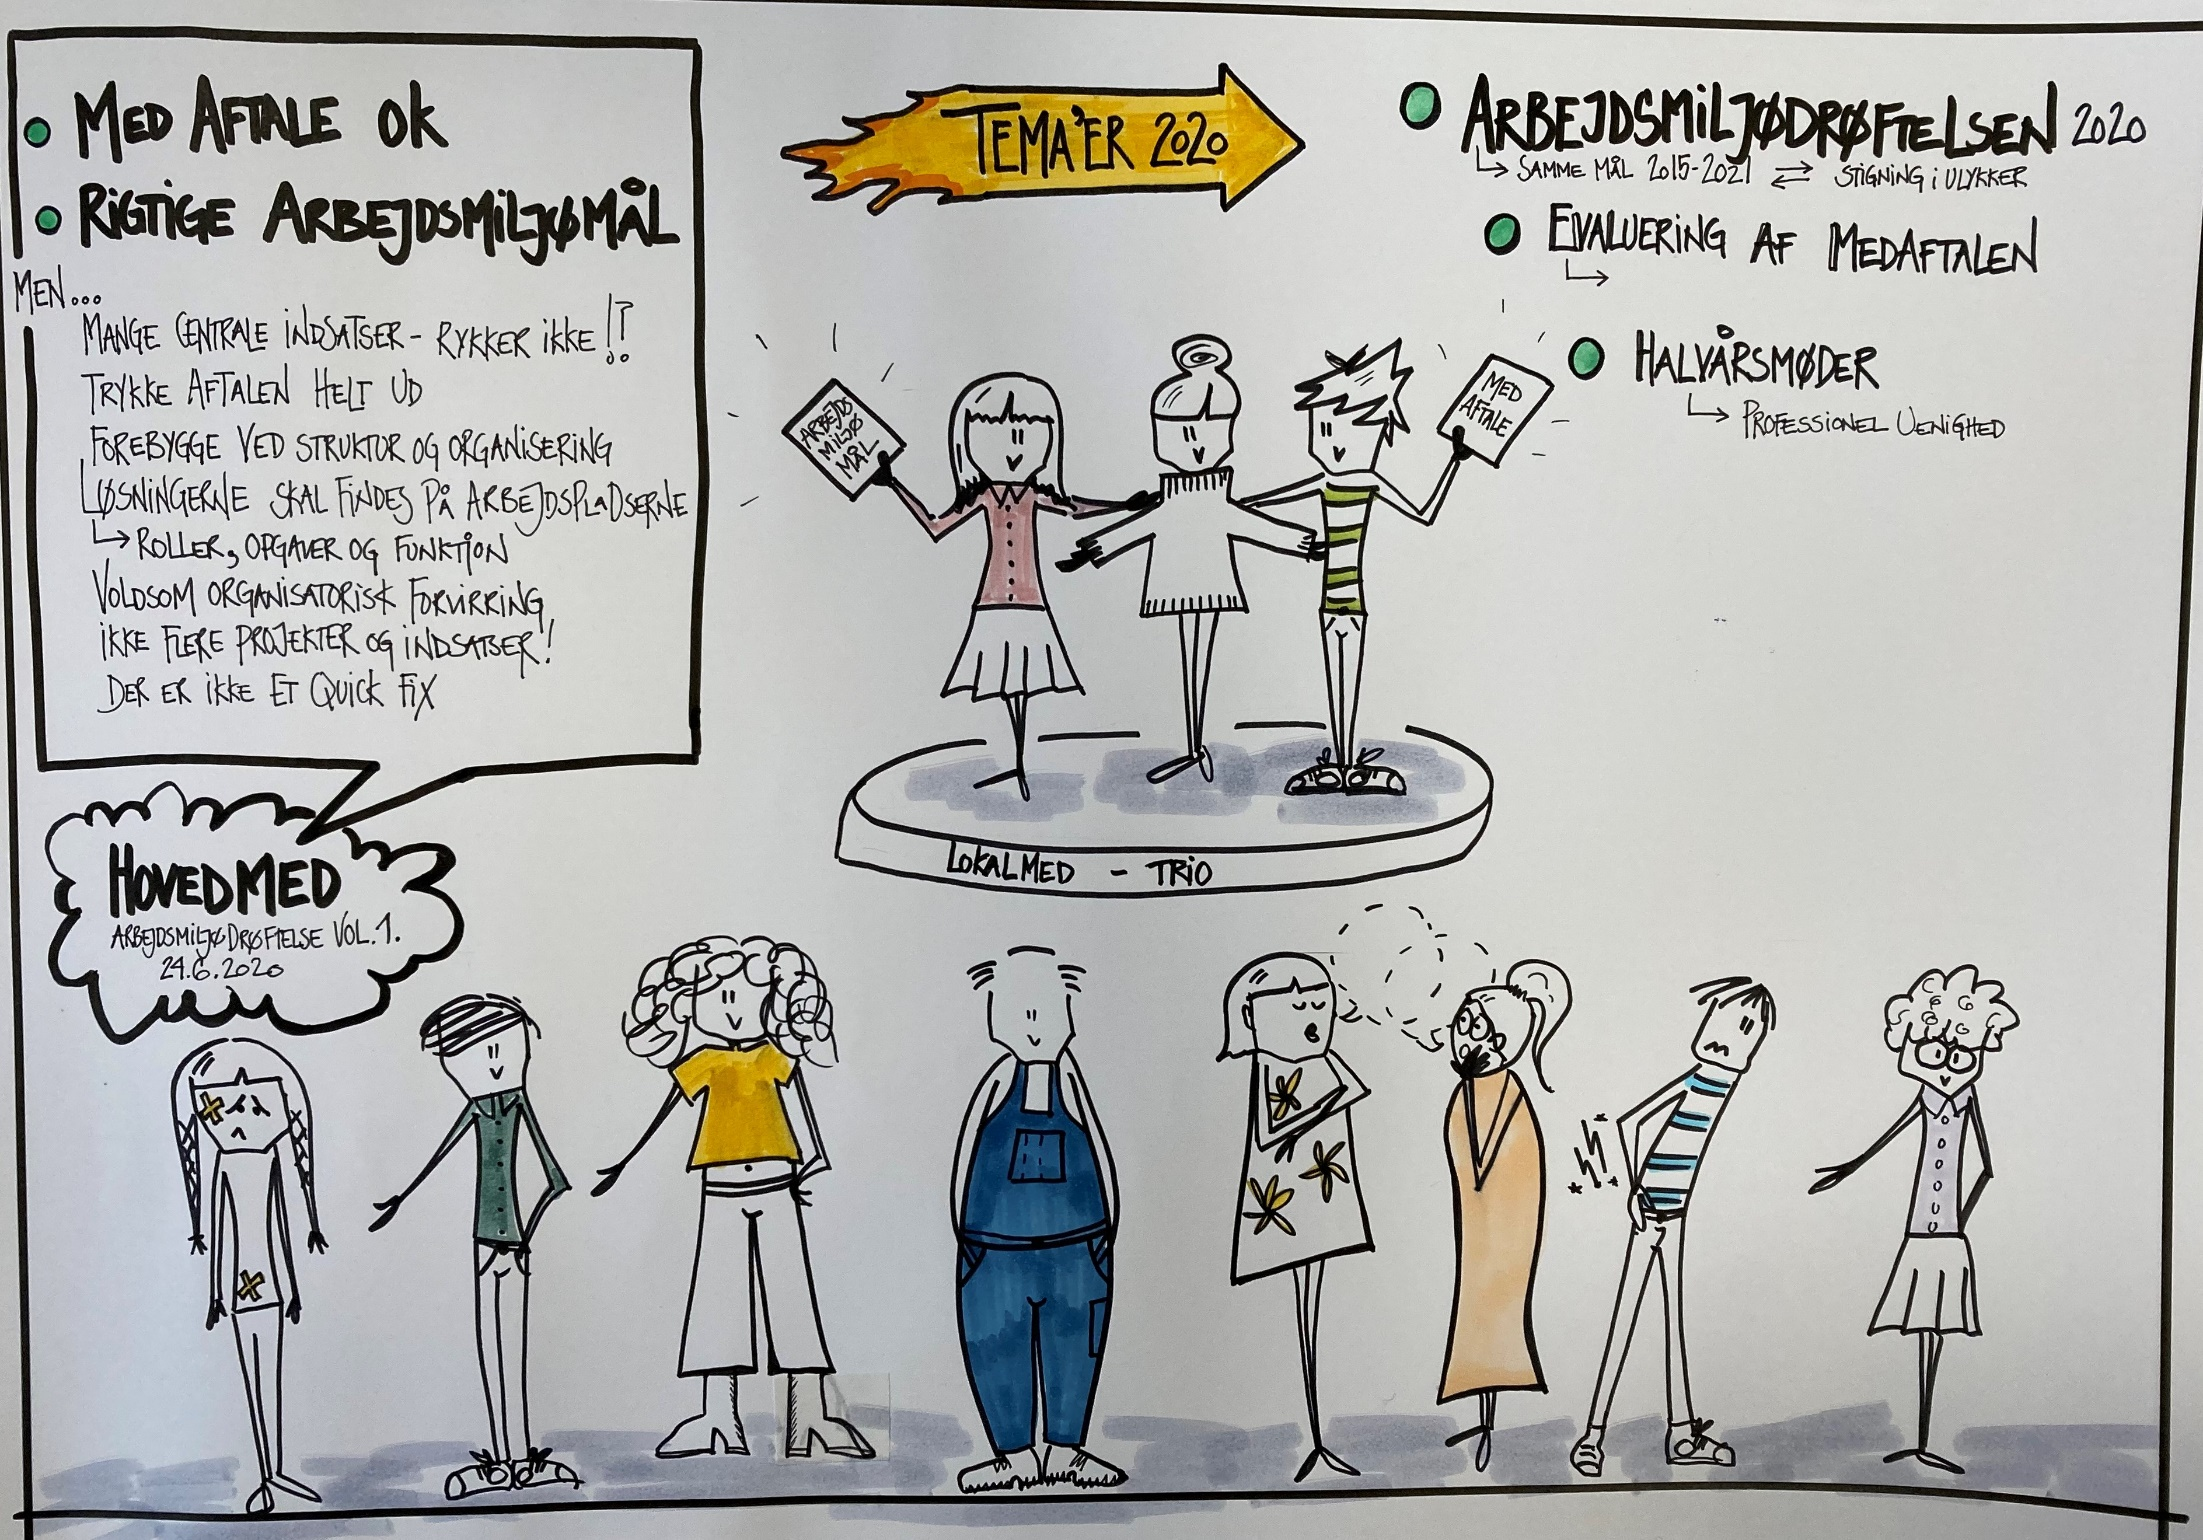 MED AFTALE OK
RIGTIGE ARBEJDSMILJØMÅL
MEN...
MANGE CENTRALE INDSATSER - RYKKER IKKE!?
TRYKKE AFTALEN HELT UD
FOREBYGGE VED STRUKTUR OG ORGANISERING
LØSNINGERNE SKAL FINDES PÅ ARBEJDSPLADSERNE
↳ ROLLER, OPGAVER OG FUNKTION
VOLDSOM ORGANISATORISK FORVIRRING
IKKE FLERE PROJEKTER OG INDSATSER!
DER ER IKKE ET QUICK FIX
HOVEDMED
ARBEJDSMILJØDRØFTELSE VOL.1.
24.6.2020
TEMA'ER 2020
ARBEJDSMILJØDRØFTELSEN 2020
↳ SAMME MÅL 2015-2021 ⇄ STIGNING I ULYKKER
EVALUERING AF MEDAFTALEN
↳
HALVÅRSMØDER
↳ PROFESSIONEL UENIGHED
ARBEJDS
MILJØ
MÅL
MED
AFTALE
LOKALMED - TRIO